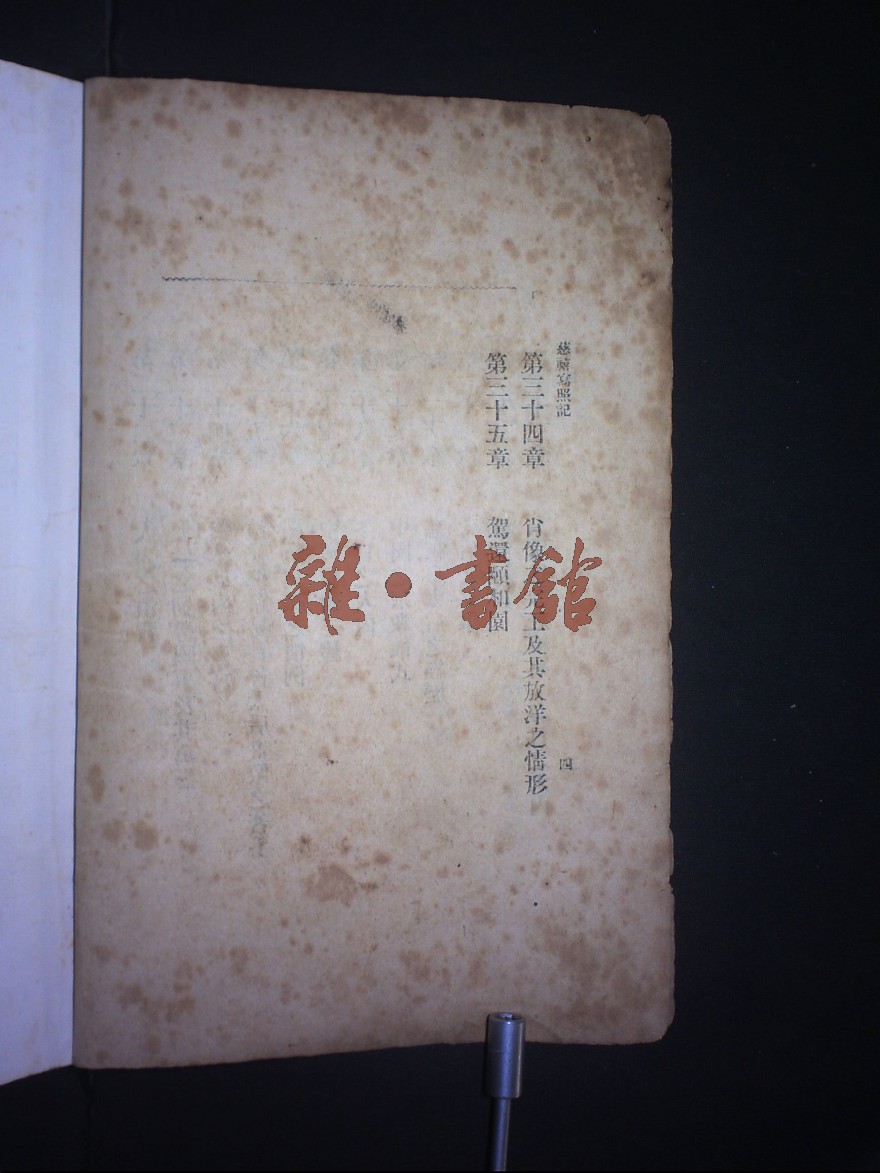 慈禧寫照記
第三十四章 肖像之完工及其放洋之情形
第三十五章 駕還頤和園
四
雜·書館